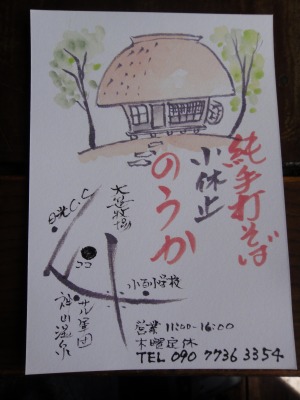 純手打そば
小休止
のうか
大笹牧場
日光C.C
ココ
小百小学校
サル軍団
福山温泉
営業 11:00-16:00
木曜定休
TEL 090 7736 3354